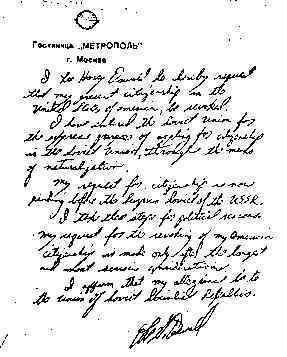 Гостиница „МЕТРОПОЛЬ"
г. Москва
I Lee Harvey Oswald do hereby request
that my present citizenship in the
United States of america, be revoked.
I have entered the Soviet Union for
the express purpose of appling for citizenship
in the Soviet Union, through the means
of naturalization.
My request for citizenship is now
pending before the Supreme Soviet of the U.S.S.R.
I take these steps for political reasons.
My request for the revoking of my American
citizenship is made only after the longest
and most serious considerations.
I affirm that my allegiance is to
the Union of Soviet Socialist Republics.